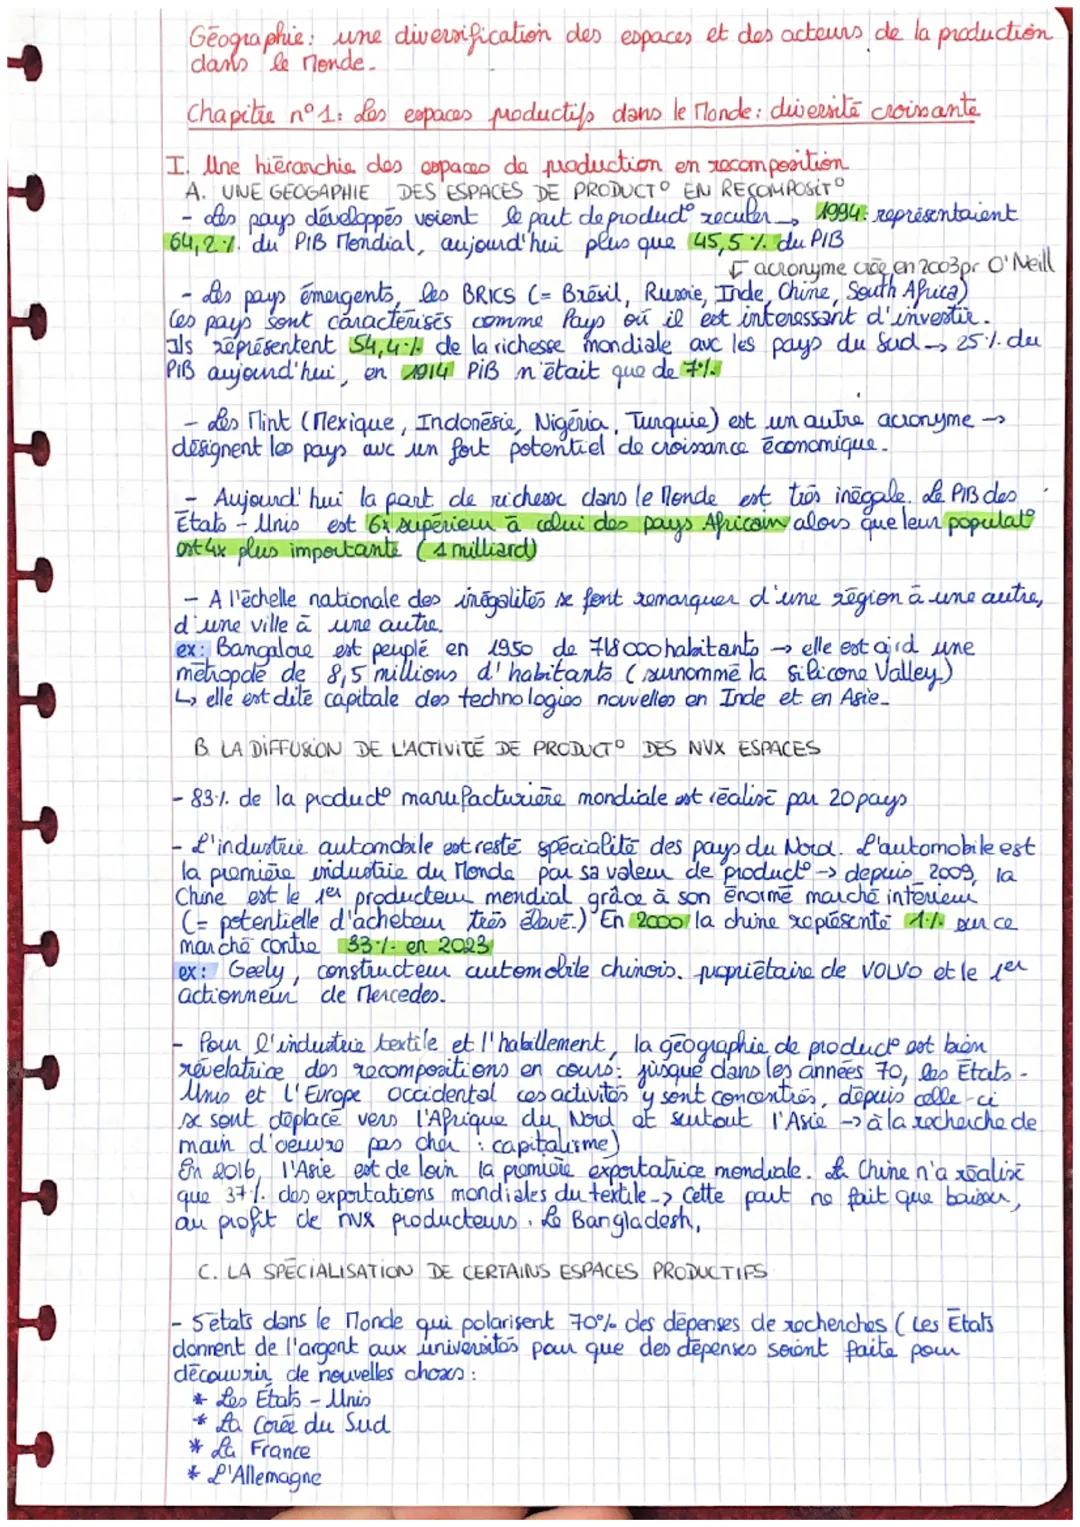 Géographie: une diversification des espaces et des acteurs de la production
dans le Monde.
Chapitre n°1: Les espaces productifs dans le Monde: diversité croissante
I. Une hiérarchie des espaces de production en recomposition
A. UNE GEOGAPHIE DES ESPACES DE PRODUCT° EN RECOMPOSIT°
- Les pays développés voient le part de product° reculer → 1994: représentaient
64,2% du PIB Mondial, aujourd'hui plus que 45,5% du PIB
↓ acronyme crée en 2003 pr O'Neill
- Les pays émergents, les BRICS (= Brésil, Russie, Inde, Chine, South Africa)
Ces pays sont caractérisés comme Pays où il est interessant d'investir.
Ils représentent 54,4% de la richesse mondiale avc les pays du Sud → 25% du
PIB aujourd'hui, en 1914 PIB n'était que de 7%
- Les Mint (Mexique, Indonésie, Nigéria, Turquie) est un autre acronyme →
désignent les pays avc un fort potentiel de croissance économique.
- Aujourd'hui la part de richesse dans le Monde est très inégale. Le PIB des
États-Unis est 6x supérieur à celui des pays Africain alors que leur populat°
est 4x plus importante (1 milliard)
- A l'échelle nationale des inégalités se font remarquer d'une région à une autre,
d'une ville à une autre.
ex: Bangalore est peuplé en 1950 de 718 000 habitants → elle est ajrd une
métropole de 8,5 millions d'habitants (surnommé la Silicone Valley)
↳ elle est dite capitale des technologies nouvelles en Inde et en Asie.
B. LA DIFFUSION DE L'ACTIVITÉ DE PRODUCT° DES NVX ESPACES
- 83% de la product° manufacturière mondiale est réalisé par 20 pays
- L'industrie automobile est resté spécialité des pays du Nord. L'automobile est
la première industrie du Monde par sa valeur de product° → depuis 2009, la
Chine est le 1er producteur mondial grâce à son énorme marché intérieur
(= potentielle d'acheteur très élevé.) En 2000 la chine représenté 1% sur ce
marché contre 33% en 2023
ex: Geely, constructeur automobile chinois. propriétaire de VOLVO et le 1er
actionneur de Mercedes.
- Pour l'industrie textile et l'habillement, la géographie de product° est bien
révelatrice des recompositions en cours: jusque dans les années 70, les États-
Unis et l'Europe occidental ces activités y sont concentrés, depuis celle-ci
se sont déplacé vers l'Afrique du Nord et surtout l'Asie → à la recherche de
main d'oeuvre pas cher : capitalisme)
En 2016, l'Asie est de loin la première exportatrice mondiale. La Chine n'a réalisé
que 37% des exportations mondiales du textile → Cette part ne fait que baisser,
au profit de nvx producteurs. Le Bangladesh,
C. LA SPÉCIALISATION DE CERTAINS ESPACES PRODUCTIFS
- 5 états dans le Monde qui polarisent 70% des dépenses de recherches (Les États
donnent de l'argent aux universités pour que des dépenses soient faite pour
découvrir de nouvelles choses:
* Les États-Unis
* La Corée du Sud
* La France
* L'Allemagne